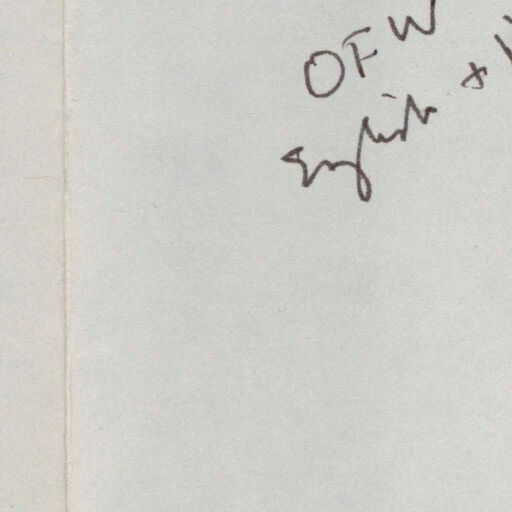 OFW
English +